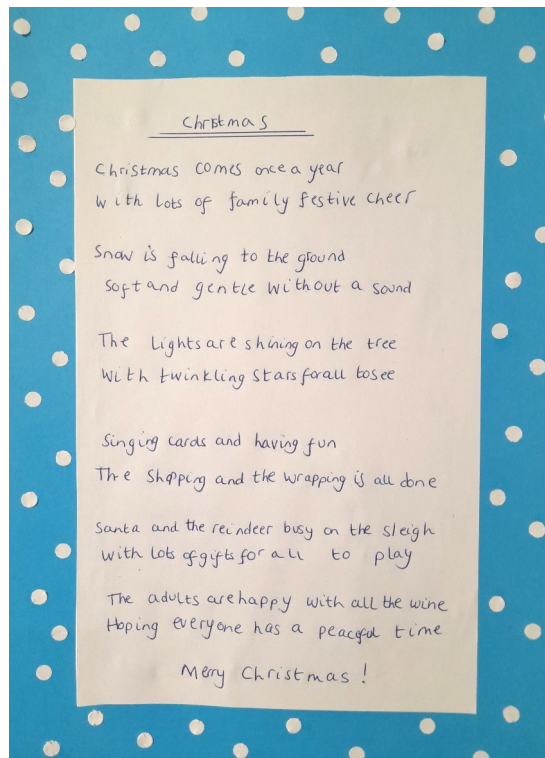 Christmas
Christmas comes once a year
with lots of family festive cheer
Snow is falling to the ground
Soft and gentle without a sound
The Lights are shining on the tree
With twinkling stars for all to see
Singing cards and having fun
The Shopping and the wrapping is all done
Santa and the reindeer busy on the sleigh
with lots of gifts for all to play
The adults are happy with all the wine
Hoping everyone has a peaceful time
Merry Christmas!